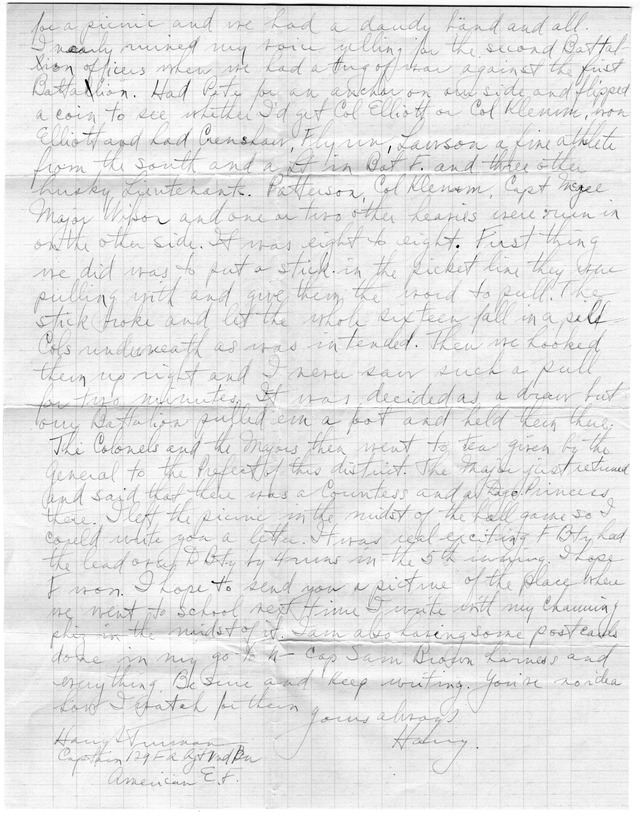 for a picnic and we had a dandy band and all.
I nearly ruined my voice yelling for the second Battal-
ion officers when we had a tug of war against the first
Battalion. Had Pete for an anchor on our side and flipped
a coin to see whether I'd get Col Elliott or Col Klemm, won
Elliott and had Crenshaw, Flynn, Lawson a fine athlete
from the south and a Lt in Bat F. and three other
husky Lieutenants. Patterson, Col Klemm, Capt McGee
Major Wilson and one or two other heavies were run in
on the other side. It was eight to eight. First thing
we did was to put a stick in the picket line they were
pulling with and give them the word to pull. The
stick broke and let the whole sixteen fall in a pile
Cols underneath as was intended. Then we hooked
them up right and I never saw such a pull
for two minutes. It was decided as a draw but
our Battalion pulled em a foot and held them there.
The Colonels and the Majors then went to tea given by the
General to the Prefect of this district. The Major just returned
and said that there was a Countess and a Princess
there. I left the picnic in the midst of the ball game so I
could write you a letter. It was real exciting F Bty had
the lead over D Bty by 4 runs in the 5th inning. I hope
F won. I hope to send you a picture of the place where
we went to School next time I write with my charming
phiz in the midst of it. I am also having some postcards
done in my go to h— cap Sam Brown harness and
everything. Be sure and keep writing. You've no idea
how I watch for them
Yours always
Harry.
Harry S Truman
Capt 129 F A Rgt 2nd Bn
American E. F.